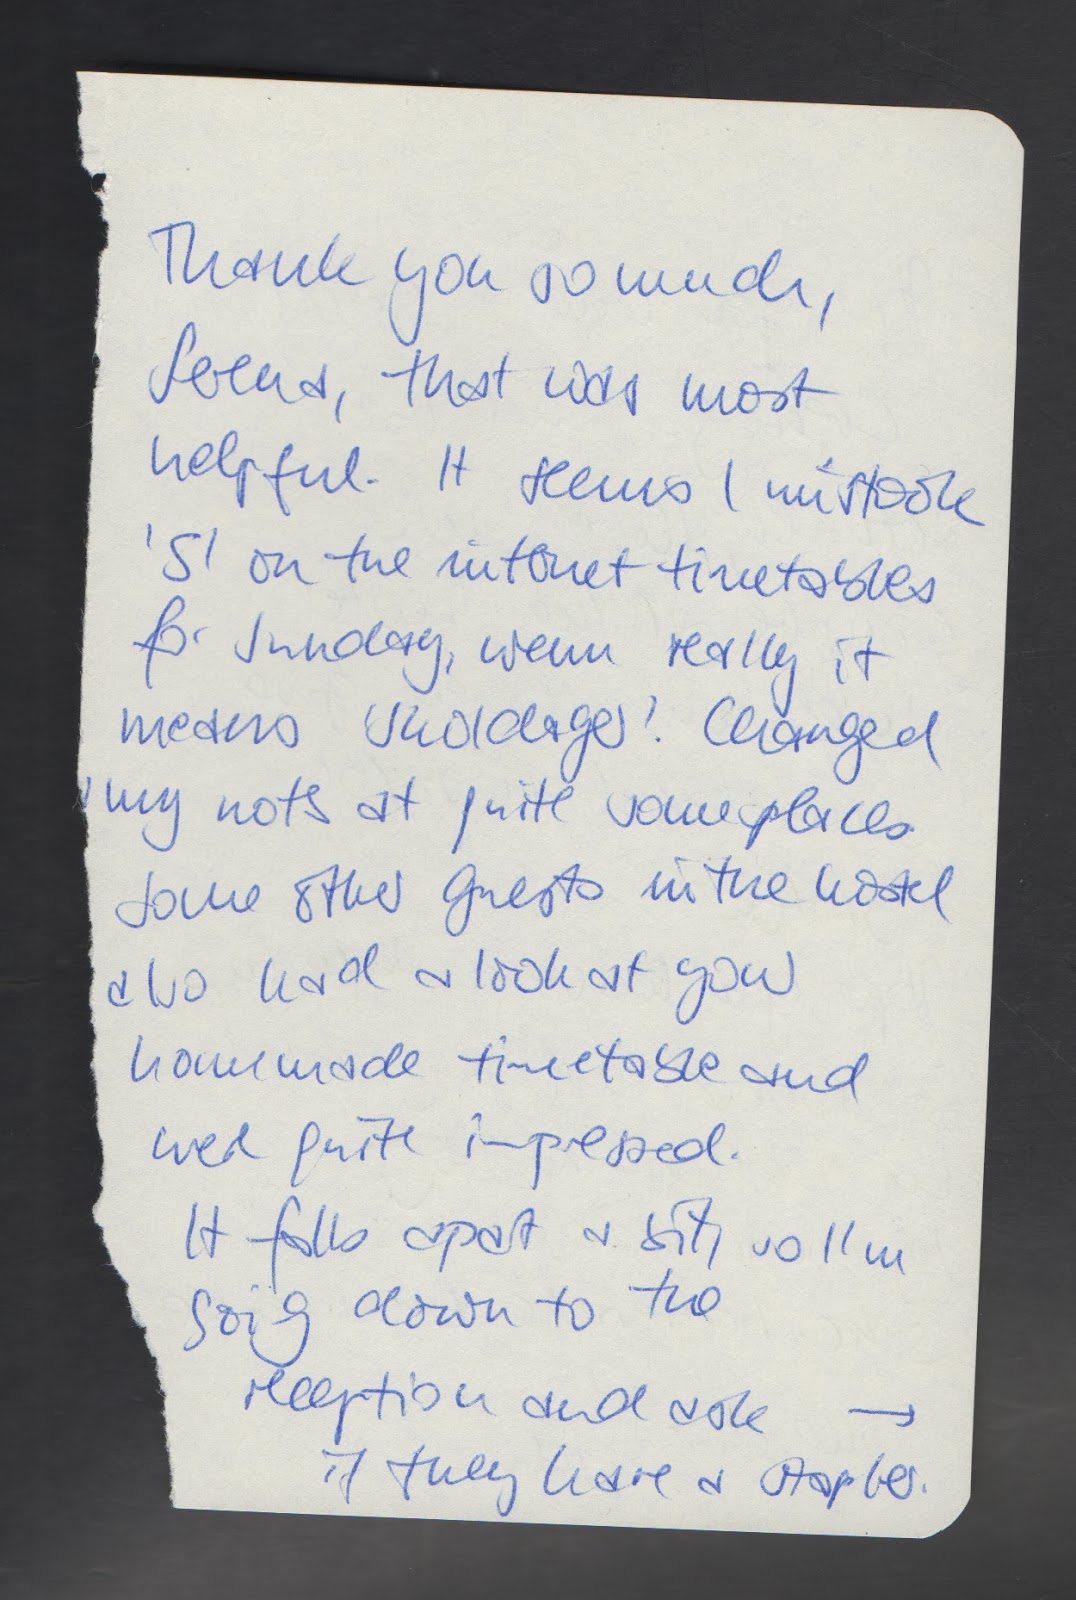 Thank you so much,
Serena, that was most
helpful. It seems I mistook
'S' on the internet timetables
for Sunday, wenn really it
means 'skoldager'. Changed
my nots at quite some places
some other guests in the hostel
also had a look at your
homemade timetable and
wer quite impressed.
It falls apart a bit, so I'm
going down to the
reception and ask →
if they have a stapler.